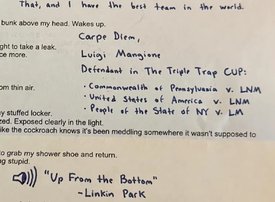 That, and I have the best team in the world.
bunk above my head. Wakes up.
Carpe Diem,
ght to take a leak.
ce more.
Luigi Mangione
Defendant in The Triple Trap CUP:
om thin air.
• Commonwealth of Pennsylvania v. LNM
• United States of America v. LNM
• People of the State of NY v. LM
y stuffed locker.
zed. Exposed clearly in the light.
like the cockroach knows it's been meddling somewhere it wasn't supposed to
to grab my shower shoe and return.
ng stupid.
"Up From the Bottom"
-Linkin Park